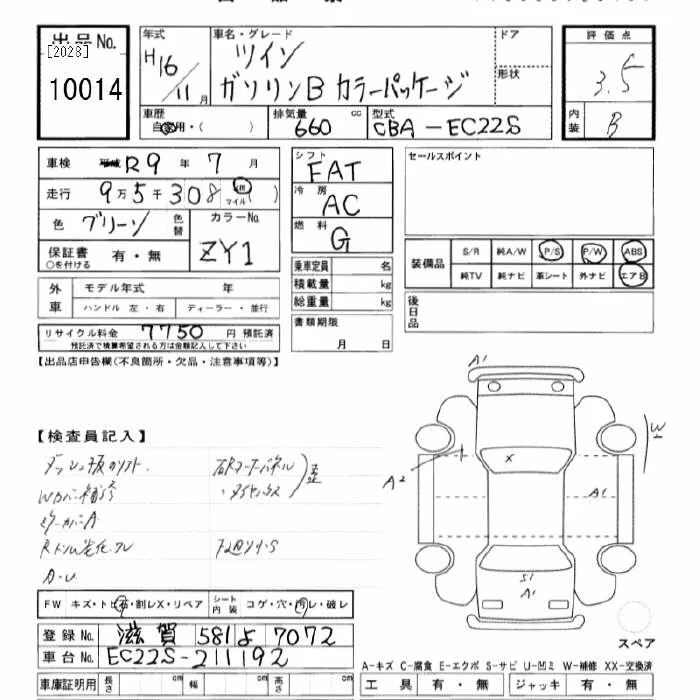 出品No.
[2028]
10014
年式
H16/11月
車名・グレード
ツイン
ガソリンB カラーパッケージ
ドア
形状
評価点
3.5
内装
B
車歴
自家用・( )
排気量
660 cc
型式
CBA-EC22S
車検
R9年 7月
走行
9万5千308 km マイル ( )
色
グリーン
色替
カラーNo.
ZY1
保証書
○を付ける
有・無
シフト
FAT
冷房
AC
燃料
G
乗車定員 名
積載量 kg
総重量 kg
書類期限
月 日
セールスポイント
装備品
S/R 純A/W P/S P/W ABS
純TV 純ナビ 革シート 外ナビ エアB
後日品
外車
モデル年式 年
ハンドル 左・右 ディーラー・並行
リサイクル料金 7750 円 預託済
預託済で積算希望される方は金額記入して下さい
【出品店申告欄(不良箇所・欠品・注意事項等)】
【検査員記入】
A1
W
A2
X
A1
S1
A1
スペア
FW キズ・トビ石・割レX・リペア シート内装 コゲ・穴・汚レ・破レ
登録No. 滋賀 581 よ 7072
車台No. EC22S-211192
A-キズ C-腐食 E-エクボ S-サビ U-凹ミ W-補修 XX-交換済
車庫証明用 長さ cm 幅 cm 高さ cm
工具 有・無 ジャッキ 有・無